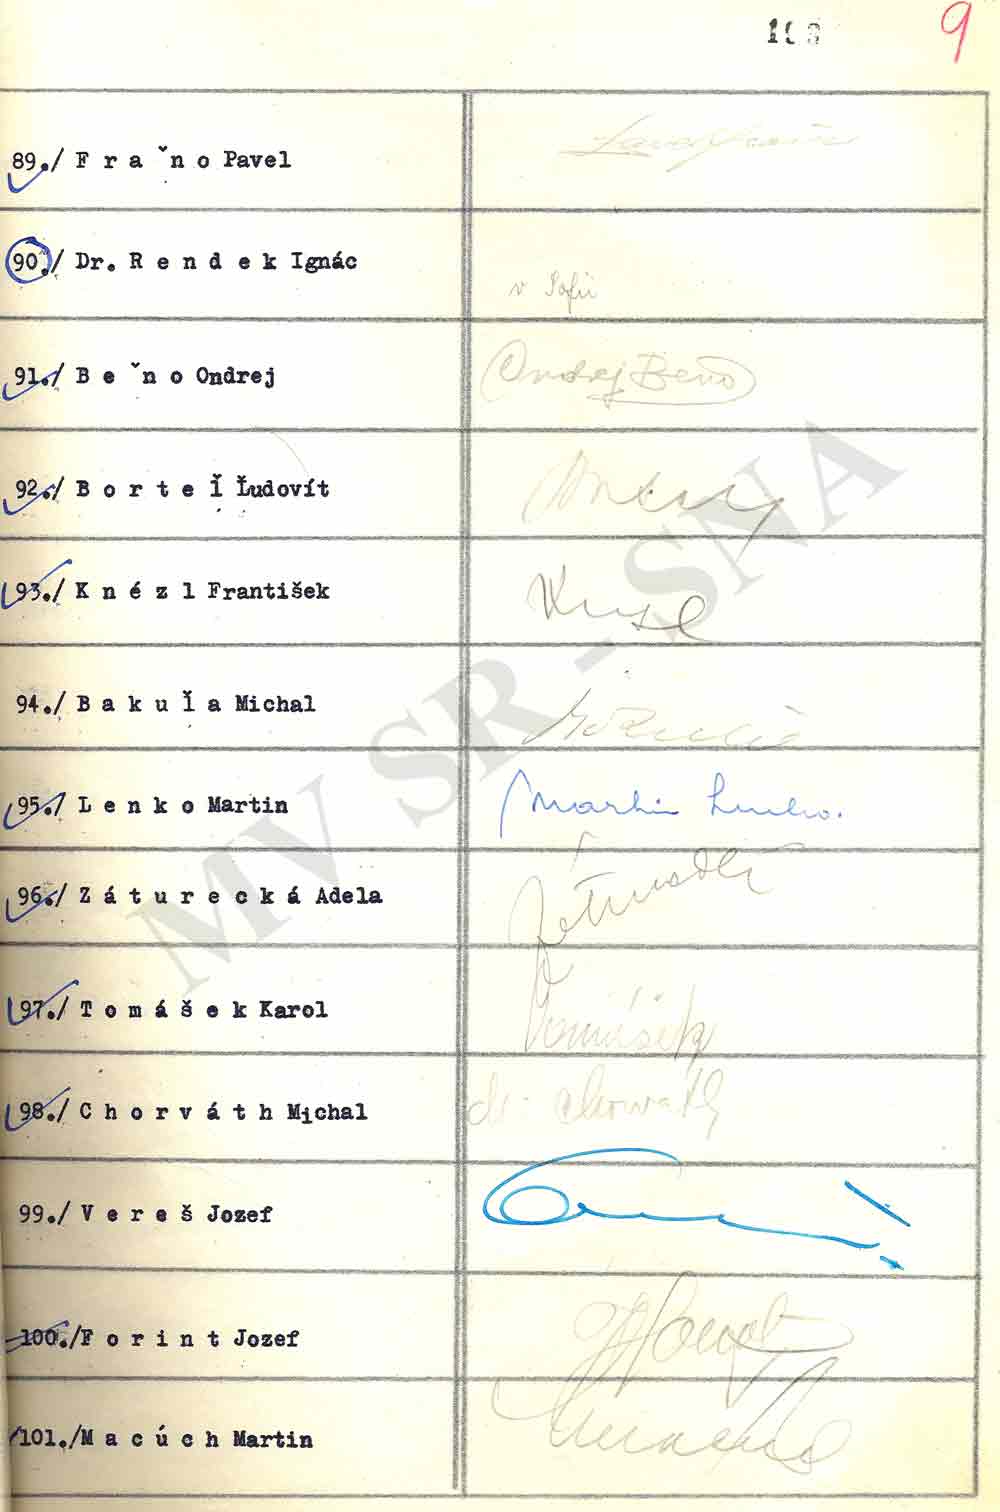 9
89./ F r a ˇn o Pavel
90./ Dr. R e n d e k Ignác
v Sofii
91./ B e ˇn o Ondrej
Ondrej Beňo
92./ B o r t e ľ Ľudovít
93./ K n é z l František
94./ B a k u ľ a Michal
95./ L e n k o Martin
Martin Lenko.
96./ Z á t u r e c k á Adela
97./ T o m á š e k Karol
Tomášek
98./ C h o r v á t h Michal
M. Chorváth
99./ V e r e š Jozef
100./F o r i n t Jozef
101./M a c ú c h Martin
MV SR - SNA